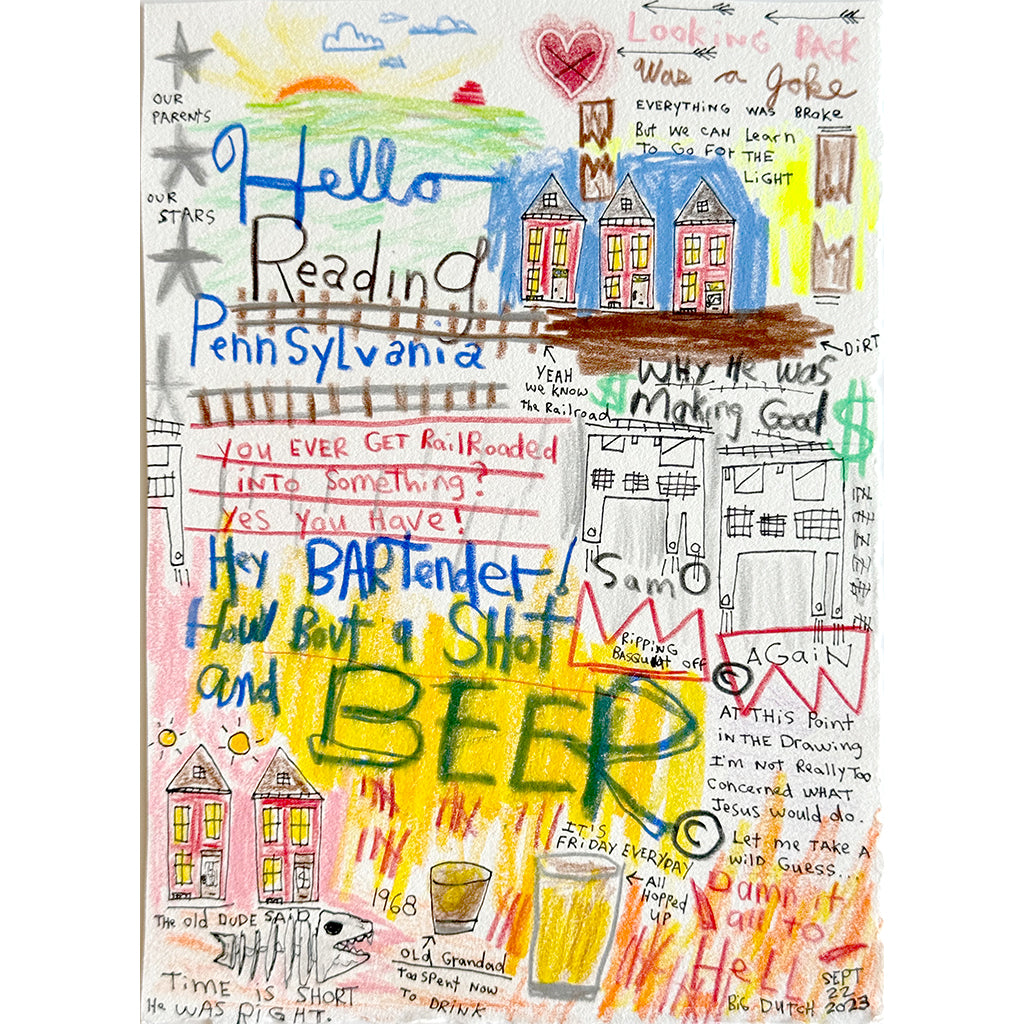 LOOKING BACK
Was a Joke
EVERYTHING WAS BROKE
But WE CAN Learn
To Go FOR THE
LiGHT
OUR
PARENTS
OUR
STARS
Hello
Reading
PennSylvania
DiRT
YEAH
WE KNOW
the Railroad
WHY HE WAS
Making Good
$
$
YOU EVER GET RailRoaded
iNTO SomeThing?
Yes You Have!
Hey BARTender!
How Bout a SHot
and BEER
SamO
RiPPiNG
BASQUiAT OFF
©
AGaiN
AT THiS Point
iN THE Drawing
I'm Not Really Too
Concerned WHAT
Jesus would do.
Let me TAKE A
WilD GUESS...
Damn it
all to
Hell
©
IT'S
FRiDAY EVERYDAY
All
Hopped
UP
1968
OLd Grandad
Too Spent Now
To DRiNK
The old DUDE SAiD
TiME iS SHORT
He WAS RiGHT.
BiG DUTCH
SEPT
22
2023